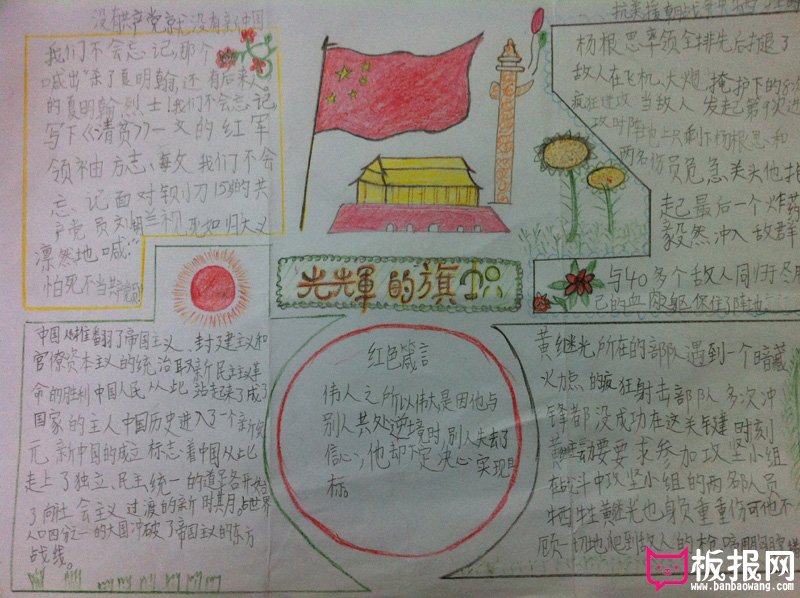 没有共产党就没有新中国
我们不会忘记,那个
喊出"杀了夏明翰,还有后来人"
的夏明翰烈士!我们不会忘记
写下《清贫》一文的红军
领袖方志敏文我们不会
忘记面对铡刀15岁的共
产党员刘胡兰视死如归大义
凛然地喊:"
怕死不当共产党员
抗美援朝战争中
杨根思率领全排先后打退了
敌人在飞机、大炮掩护下的8次
疯狂进攻当敌人发起第9次进
攻时阵地上只剩下杨根思和
两名伤员危急关头他抱
起最后一个炸药
毅然冲入敌群
与40多个敌人同归于尽用
己的血肉躯保住了阵地
光辉的旗帜
中国人民推翻了帝国主义、封建主义和
官僚资本主义的统治取新民主主义革
命的胜利中国人民从此站起来了成了
国家的主人中国历史进入了一个新纪
元新中国的成立标志着中国从此
走上了独立、民主、统一的道路开始
了向社会主义过渡的新时期占世界
人口四分之一的大国冲破了帝国主义的东方
战线。
红色箴言
伟人之所以伟大是因他与
别人共处逆境时,别人失去了
信心,他却下定决心实现目
标。
黄继光所在的部队遇到一个暗藏
火力点的疯狂射击部队多次冲
锋都没成功在这关键时刻
黄继光要求参加攻坚小组
在战斗中攻坚小组的两名队员
牺牲黄继光也身负重伤可他不
顾一切地爬到敌人的枪
板报网
www.banbaowang.com